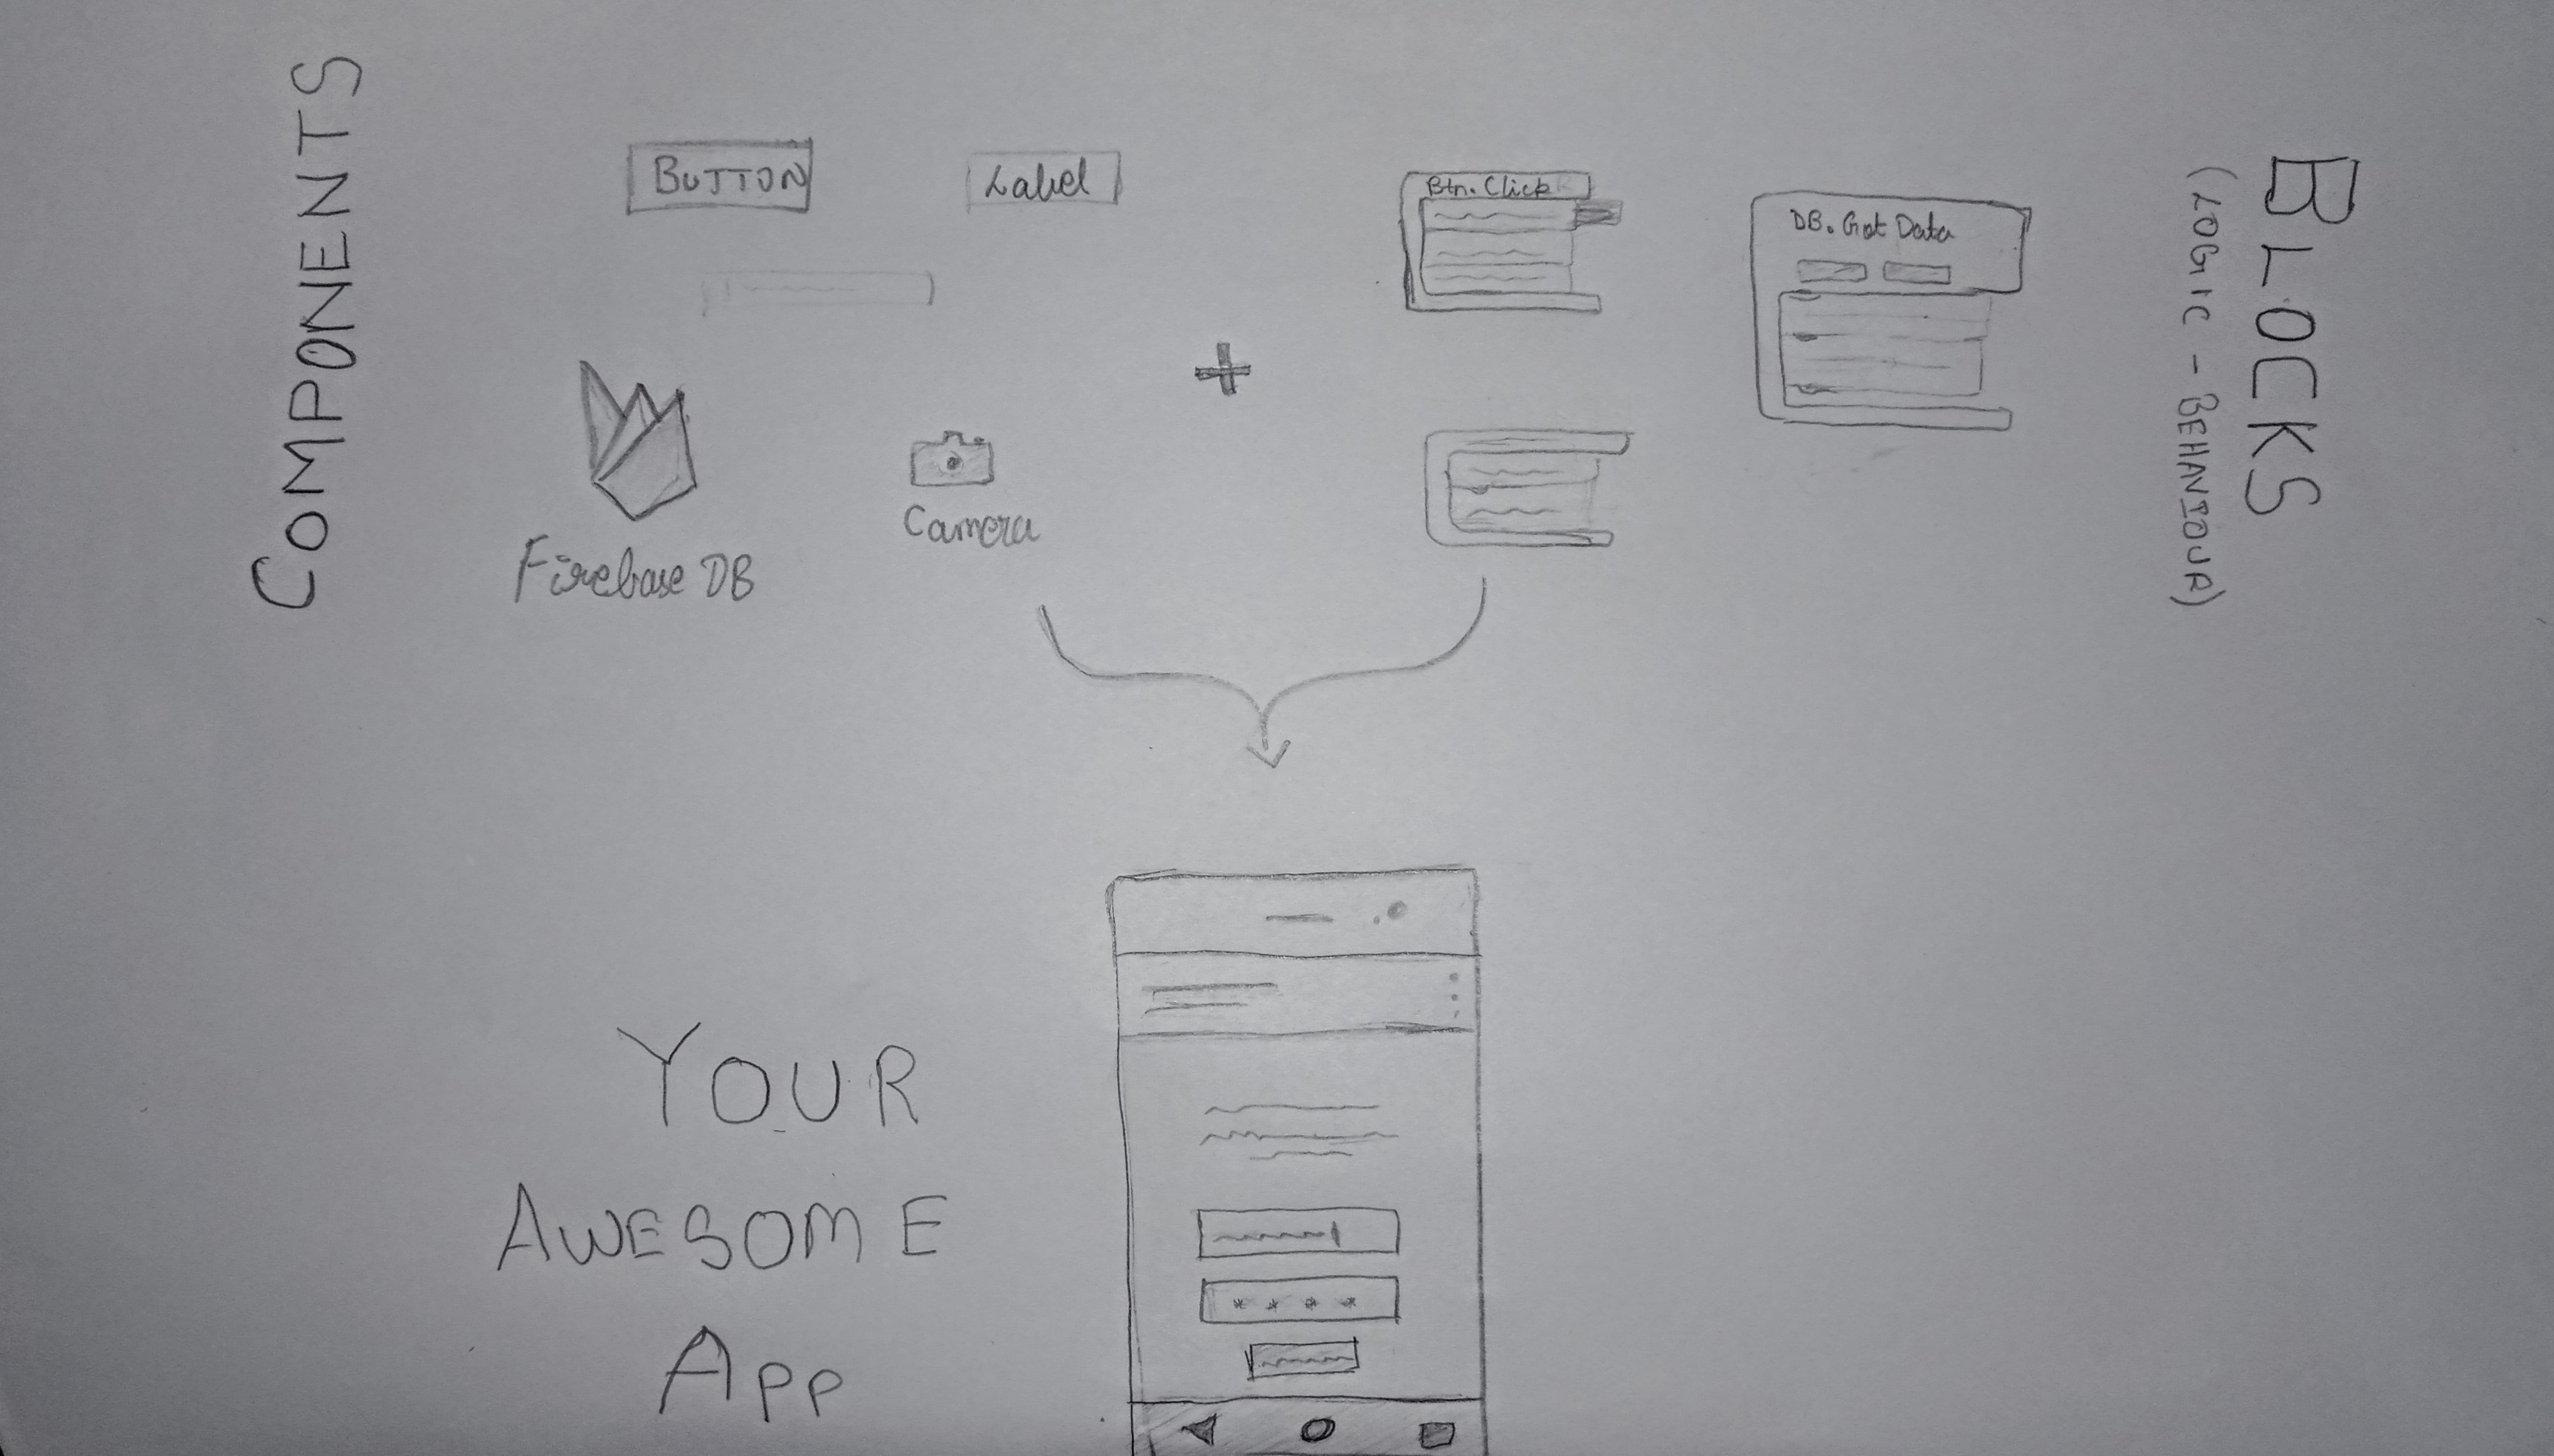 COMPONENTS
BUTTON
Label
Firebase DB
Camera
+
Btn. Click
DB. Got Data
BLOCKS
(LOGIC - BEHAVIOUR)
* * * *
YOUR
AWESOME
APP